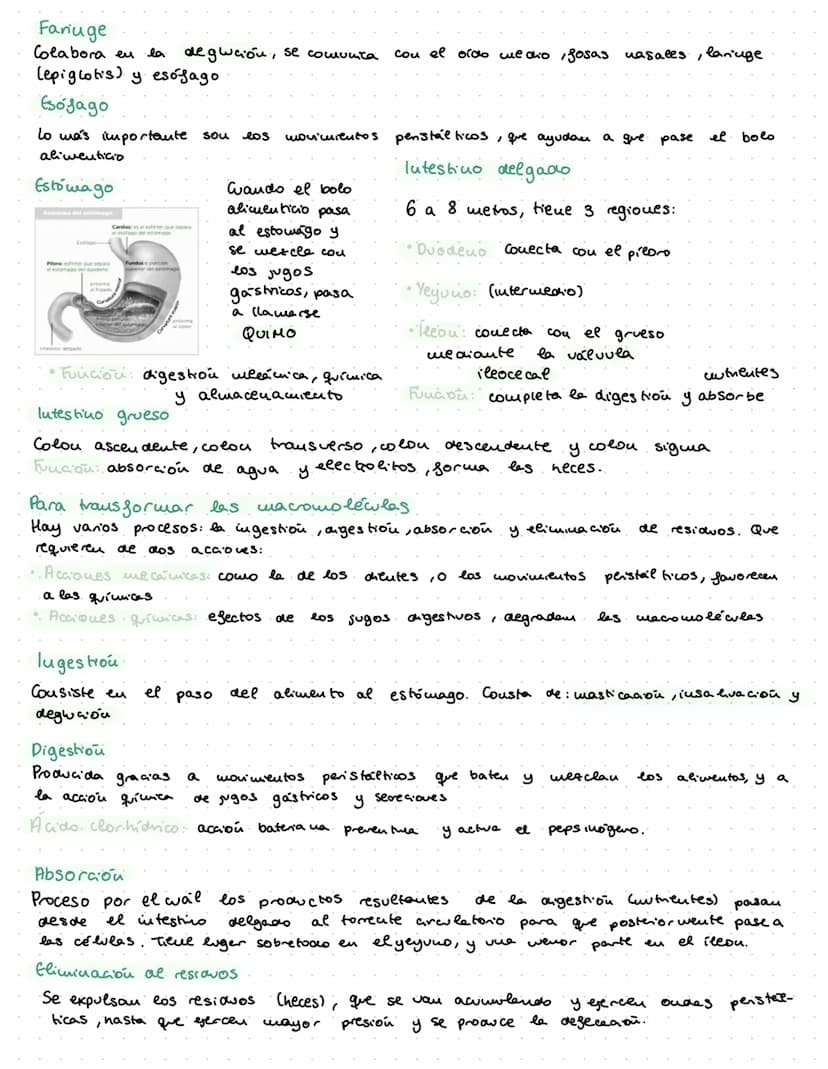 Faringe
Colabora en la deglución, se comunica con el oído medio, fosas nasales, laringe
(epiglotis) y esófago
Esófago
Lo más importante son los movimientos peristálticos, que ayudan a que pase el bolo
alimenticio
Estómago
Anatomía del estómago
Cardias: es el esfínter que separa
el esófago del estómago
Esófago
Píloro: esfínter que separa
el estómago del duodeno
Fundus o porción
superior del estómago
próxima
al hígado
Curvatura menor
Curvatura mayor
próxima
al colon
Intestino delgado
Cuando el bolo
alimenticio pasa
al estomago y
se mezcla con
los jugos
gástricos, pasa
a llamarse
QUIMO
• Función: digestión mecánica, química
y almacenamiento
Intestino delgado
6 a 8 metros, tiene 3 regiones:
• Duodeno conecta con el píloro
• Yeyuno: (intermedio)
• Íleon: conecta con el grueso
mediante la válvula
ileocecal
nutrientes
Función: completa la digestión y absorbe
Intestino grueso
Colon ascendente, colon transverso, colon descendente y colon sigma
Función: absorción de agua y electrolitos, forma las heces.
Para transformar las macromoléculas
Hay varios procesos: la ingestión, digestión, absorción y eliminación de residuos. Que
requieren de dos acciones:
• Acciones mecánicas: como la de los dientes, o los movimientos peristálticos, favorecen
a las químicas
• Acciones químicas: efectos de los jugos digestivos, degradan las macromoléculas
Ingestión
Consiste en el paso del alimento al estómago. Consta de: masticación, insalivación y
deglución
Digestión
Producida gracias a movimientos peristálticos que baten y mezclan los alimentos, y a
la acción química de jugos gástricos y secreciones
Ácido clorhídrico: acción bateriana preventiva y activa el pepsinógeno.
Absorción
Proceso por el cuál los productos resultantes de la digestión (nutrientes) pasan
desde el intestino delgado al torrente circulatorio para que posteriormente pase a
las células. Tiene lugar sobretodo en el yeyuno, y una menor parte en el íleon.
Eliminación de residuos
Se expulsan los residuos (heces), que se van acumulando y ejercen ondas peristál-
ticas, hasta que ejercen mayor presión y se produce la defecación.